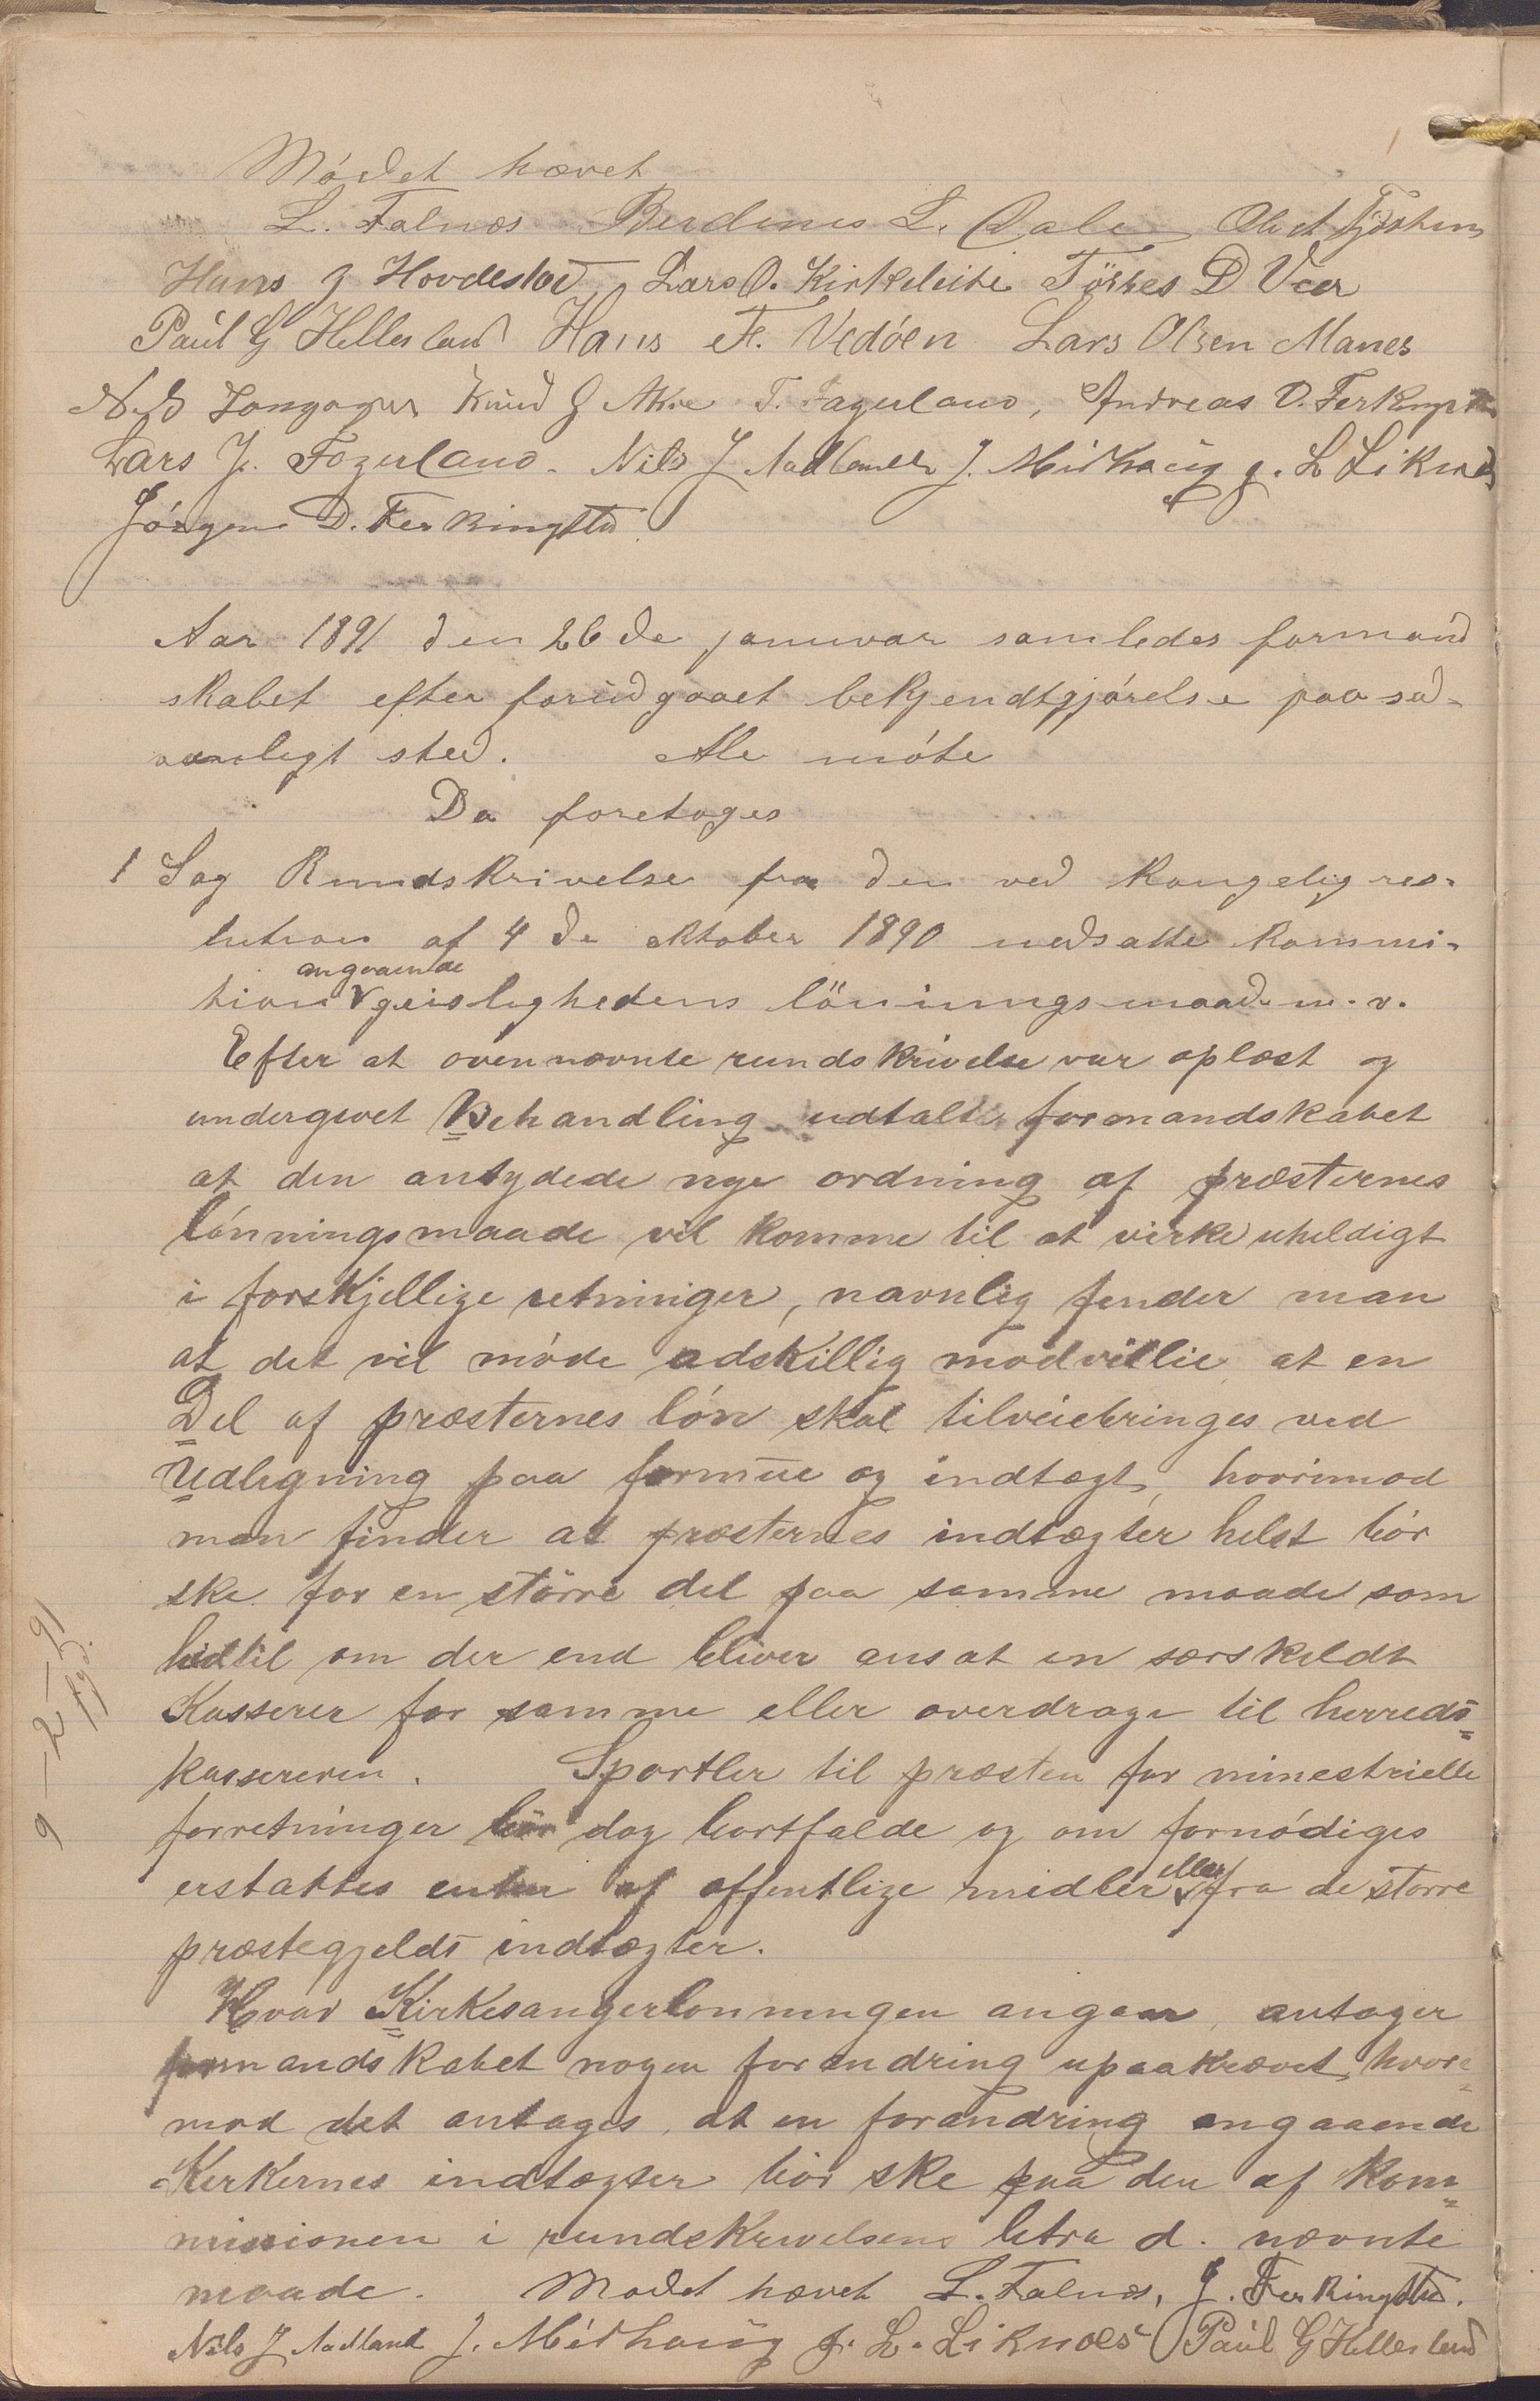 Mödet hævet
L. Falnes Berdines L. Dale Ole A Tjøsheim
Hans J Hovdestad, Lars O. Kirkeleite Törres D Veer
Paul G Hellesland Hans F. Vedöen Lars Olsen Manes
Knud G Akre T. Fagerland, Andreas D. Ferkingstad
Lars J. Fagerland. Nils J Nadland J. Midhaug g. L Liknæs
Jörgen D. Ferkingstad
Aar 1891 den 26de januvar samledes formand
skabet efter forudgaaet bekjendtgjörelse paa sæd-
vanligt sted. Ale möte
Da foretoges
1 Sag Rundskrivelse fra den ved kongelig res-
lution af 4de oktober 1890 nedsatte kommi-
tion angaaende geislighedens lönningsmaade m. v.
Efter at ovennævnte rundskrivelse var oplæst og
undergivet Behandling udtalte formandskabet
at den antydede nye ordning af præsternes
lönningsmaade vil komme til at virke uheldigt
i forskjellige retninger, navnlig finder man
at det vil möde adskillig modvillie, at en
Del af præsternes lön skal tilveiebringes ved
Udligning paa formue og indtægt, hvorimod
man finder at præsternes indtægter helst bör
ske for en större del paa samme maade som
hidtil om der end bliver ansat en særskildt
Kasserer for samme eller overdrage til herreds-
kassereren. Sportler til præsten for minestrielle
forretninger bör dog bortfalde og om fornödiges
erstattes enten af offentlige midler eller fra de større
præstegjelds indtægter.
Hvad Kirkesangerlønningen angaar, antager
formandskabet nogen forandring upaakrævet, hvor-
mod det antages, at en forandring angaaende
Kirkernes indtægter bör ske paa den af kom-
missionen i rundskrivelsens litra d. nævnte
maade. Mødet hævet L. Falnes, J. Ferkingstad.
Nils J Nadland J. Midhaug g. L. Liknæs Paul G Hellesland
9 - 2 - 91